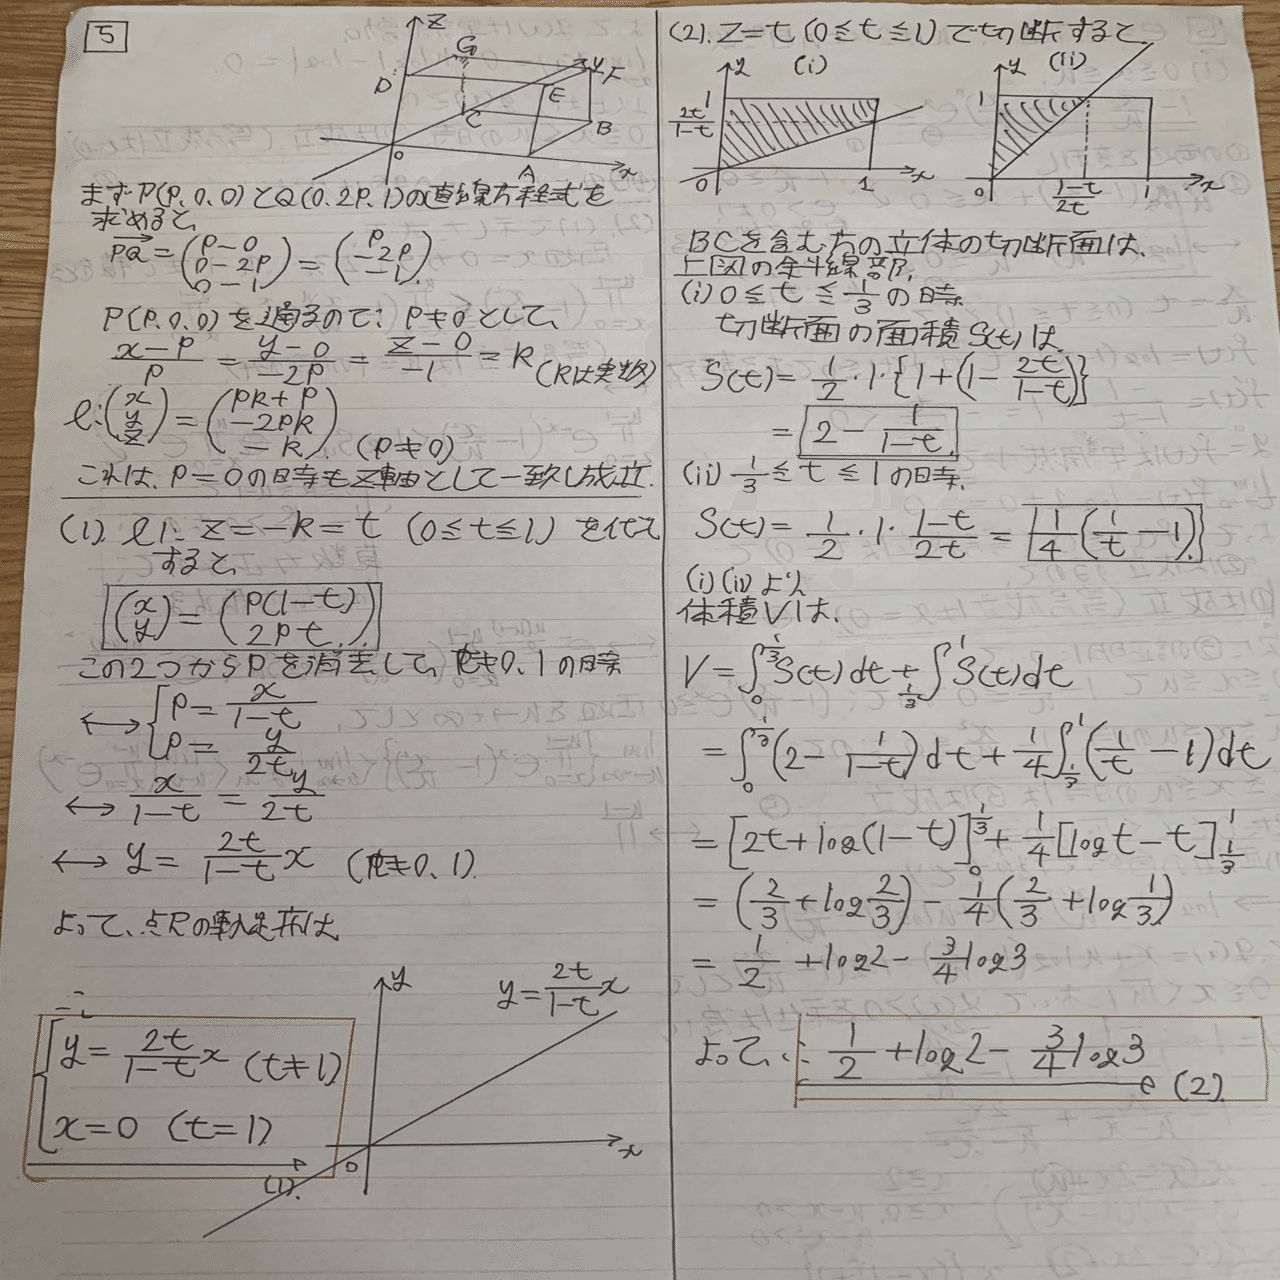 5
z
G
D
y
F
E
C
B
O
A
x
まずP(P,0,0)とQ(0,2P,1)の直線方程式を
求めると、
PQ = (P-0 0-2P 0-1) = (P -2P -1)
P(P,0,0)を通るので、P≠0として、
x-P/P = y-0/-2P = z-0/-1 = k (kは実数)
l: (x y z) = (Pk+P -2Pk -k) (P≠0)
これは、P=0の時もz軸として一致し成立.
(1). lに z=-k=t (0≤t≤1) を代入
すると、
(x y) = (P(1-t) 2Pt)
この2つからPを消去して、t≠0,1の時
↔ { P = x/1-t
P = y/2t
↔ x/1-t = y/2t
↔ y = 2t/1-t x (t≠0,1).
よって、点Rの軌跡は
y
y = 2t/1-t x
x
0
{ y = 2t/1-t x (t≠1)
x=0 (t=1)
(1).
(2). z=t (0≤t≤1)で切断すると、
y
(i)
1
2t/1-t
0
1
x
y
(ii)
1
0
1-t/2t
1
x
BCを含む方の立体の切断面は、
上図の斜線部.
(i) 0≤t≤1/3の時.
切断面の面積S(t)は、
S(t) = 1/2・1・{1+(1-2t/1-t)}
= 2 - 1/1-t.
(ii) 1/3≤t≤1の時.
S(t) = 1/2・1・1-t/2t = 1/4(1/t - 1).
(i)(ii)より
体積Vは、
V = ∫₀^{1/3} S(t)dt + ∫_{1/3}^1 S(t)dt
= ∫₀^{1/3} (2 - 1/1-t)dt + 1/4∫_{1/3}^1 (1/t - 1)dt
= [2t+log(1-t)]₀^{1/3} + 1/4[log t - t]_{1/3}^1
= (2/3 + log 2/3) - 1/4(2/3 + log 1/3)
= 1/2 + log2 - 3/4 log3
よって、∴ 1/2 + log2 - 3/4 log3
(2).